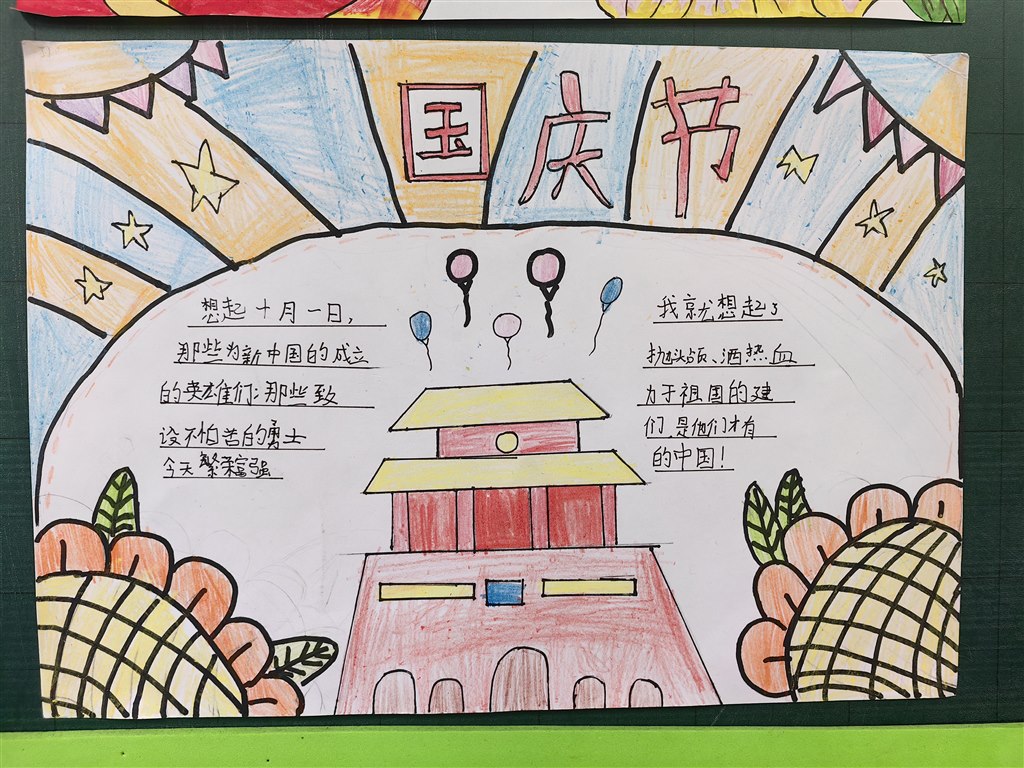 国庆节
想起十月一日，我就想起了
那些为新中国的成立抛头颅、洒热血
的英雄们；那些致力于祖国的建
设不怕苦的勇士们是他们才有
今天繁荣富强的中国！